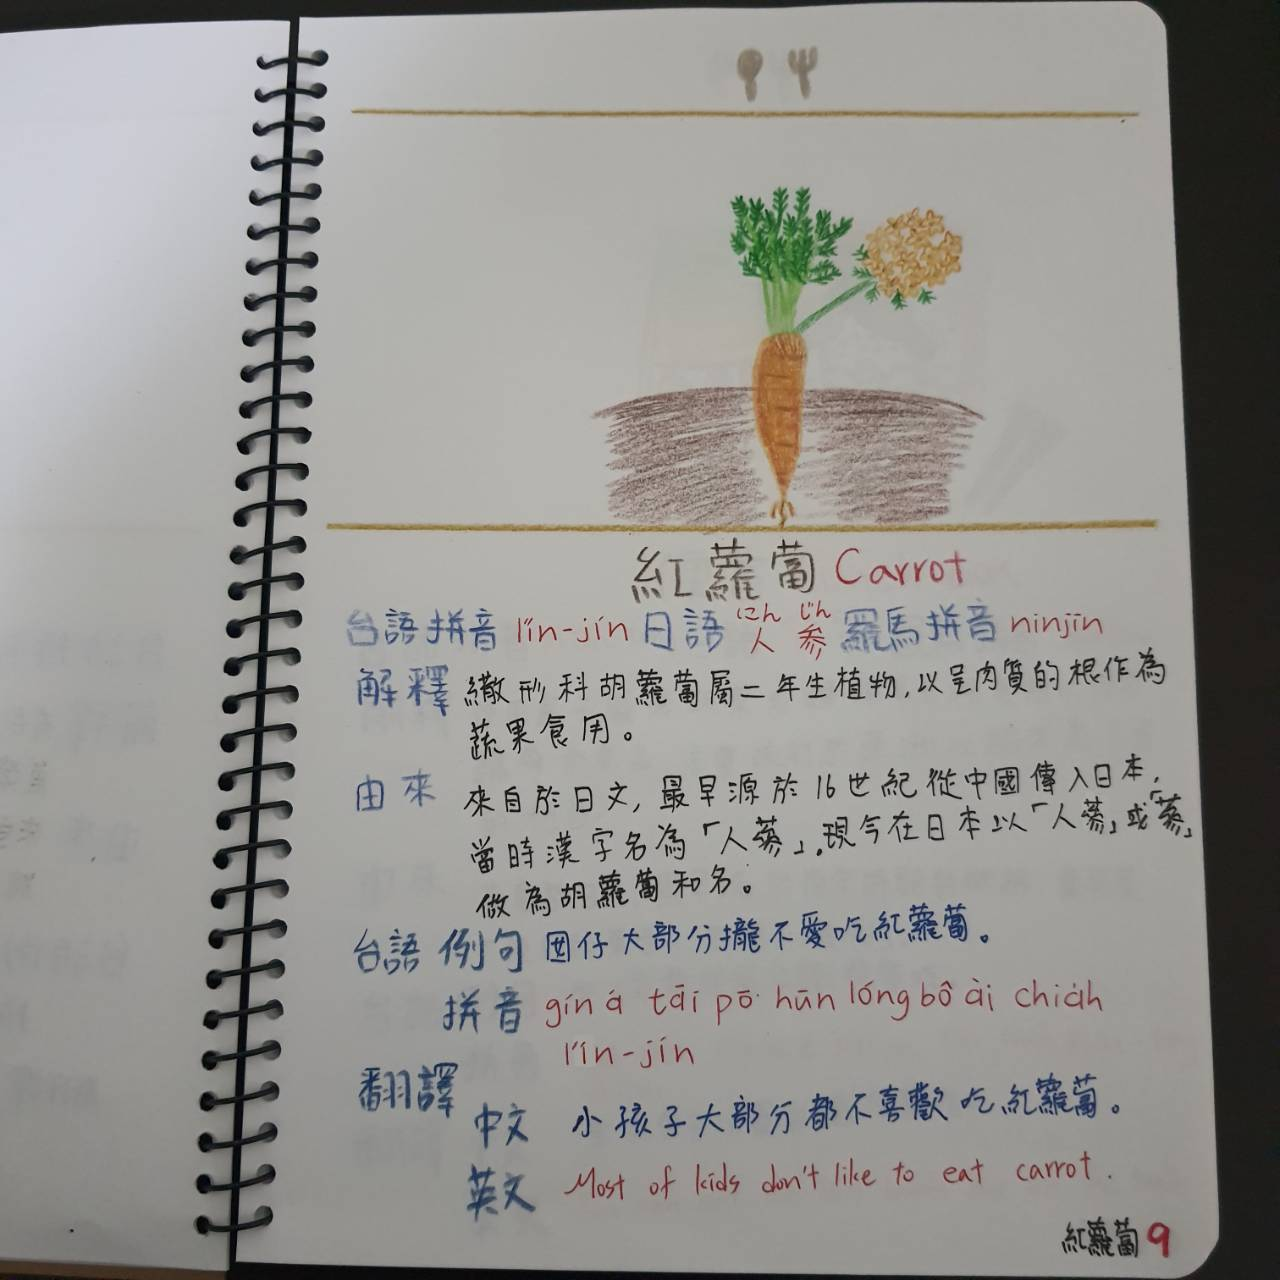 紅蘿蔔 Carrot
台語拼音 lîn-jín 日語 人参 にん じん 羅馬拼音 ninjin
解釋 繖形科胡蘿蔔屬二年生植物,以呈肉質的根作為
蔬果食用。
由來 來自於日文,最早源於16世紀從中國傳入日本,
當時漢字名為「人蔘」.現今在日本以「人蔘」或「蔘」
做為胡蘿蔔和名。
台語 例句 囡仔大部分攏不愛吃紅蘿蔔。
拼音 gín á tāi pō· hūn lóng bô ài chia̍h
lîn-jín
翻譯
中文 小孩子大部分都不喜歡吃紅蘿蔔。
英文 Most of kids don't like to eat carrot.
紅蘿蔔 9